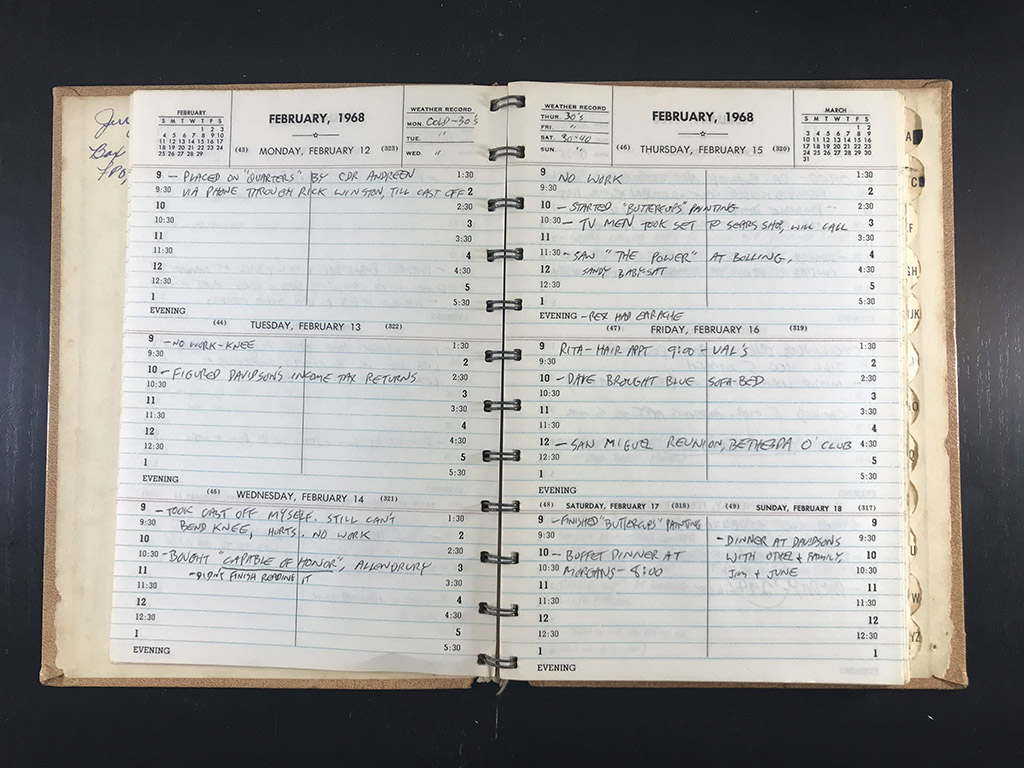 Jerr
Box
FPO,
FEBRUARY
S M T W T F S
1 2 3
4 5 6 7 8 9 10
11 12 13 14 15 16 17
18 19 20 21 22 23 24
25 26 27 28 29
FEBRUARY, 1968
(43) MONDAY, FEBRUARY 12 (323)
WEATHER RECORD
MON. COLD-30's
TUE. "
WED. "
9 - PLACED ON "QUARTERS" BY CDR ANDREEN 1:30
9:30 VIA PHONE THROUGH RICK WINSTON, TILL CAST OFF 2
10 2:30
10:30 3
11 3:30
11:30 4
12 4:30
12:30 5
1 5:30
EVENING
(44) TUESDAY, FEBRUARY 13 (322)
9 - NO WORK - KNEE 1:30
9:30 2
10 - FIGURED DAVIDSON'S INCOME TAX RETURNS 2:30
10:30 3
11 3:30
11:30 4
12 4:30
12:30 5
1 5:30
EVENING
(45) WEDNESDAY, FEBRUARY 14 (321)
9 - TOOK CAST OFF MYSELF. STILL CAN'T 1:30
9:30 BEND KNEE, HURTS. NO WORK 2
10 2:30
10:30 - BOUGHT "CAPABLE OF HONOR", ALLEN DRURY 3
11 - DIDN'T FINISH READING IT 3:30
11:30
12 4
12:30 4:30
1 5
EVENING 5:30
WEATHER RECORD
THUR. 30's
FRI. "
SAT. 30-40
SUN. "
FEBRUARY, 1968
(46) THURSDAY, FEBRUARY 15 (320)
MARCH
S M T W T F S
1 2
3 4 5 6 7 8 9
10 11 12 13 14 15 16
17 18 19 20 21 22 23
24 25 26 27 28 29 30
31
9 NO WORK 1:30
9:30 2
10 - STARTED "BUTTERCUPS" PAINTING 2:30
10:30 - TV MEN TOOK SET TO SEARS SHOP, WILL CALL 3
11 3:30
11:30 - SAW "THE POWER" AT BOLLING, 4
12 SANDY BABY-SAT 4:30
12:30 5
1 5:30
EVENING - REX HAD EARACHE
(47) FRIDAY, FEBRUARY 16 (319)
9 RITA - HAIR APPT 9:00 - VAL'S 1:30
9:30 2
10 - DAVE BROUGHT BLUE SOFA-BED 2:30
10:30 3
11 3:30
11:30 4
12 - SAN MIGUEL REUNION, BETHESDA O' CLUB 4:30
12:30 5
1 5:30
EVENING
(48) SATURDAY, FEBRUARY 17 (318)
9 - FINISHED "BUTTERCUPS" PAINTING
9:30
10 - BUFFET DINNER AT
10:30 MORGANS - 8:00
11
11:30
12
12:30
1
EVENING
(49) SUNDAY, FEBRUARY 18 (317)
9
- DINNER AT DAVIDSONS 9:30
WITH OTHEL & FAMILY, 10
JIM & JUNE 10:30
11
11:30
12
12:30
1
A
C
EF
GH
IJK
O
Q
U
W
YZ